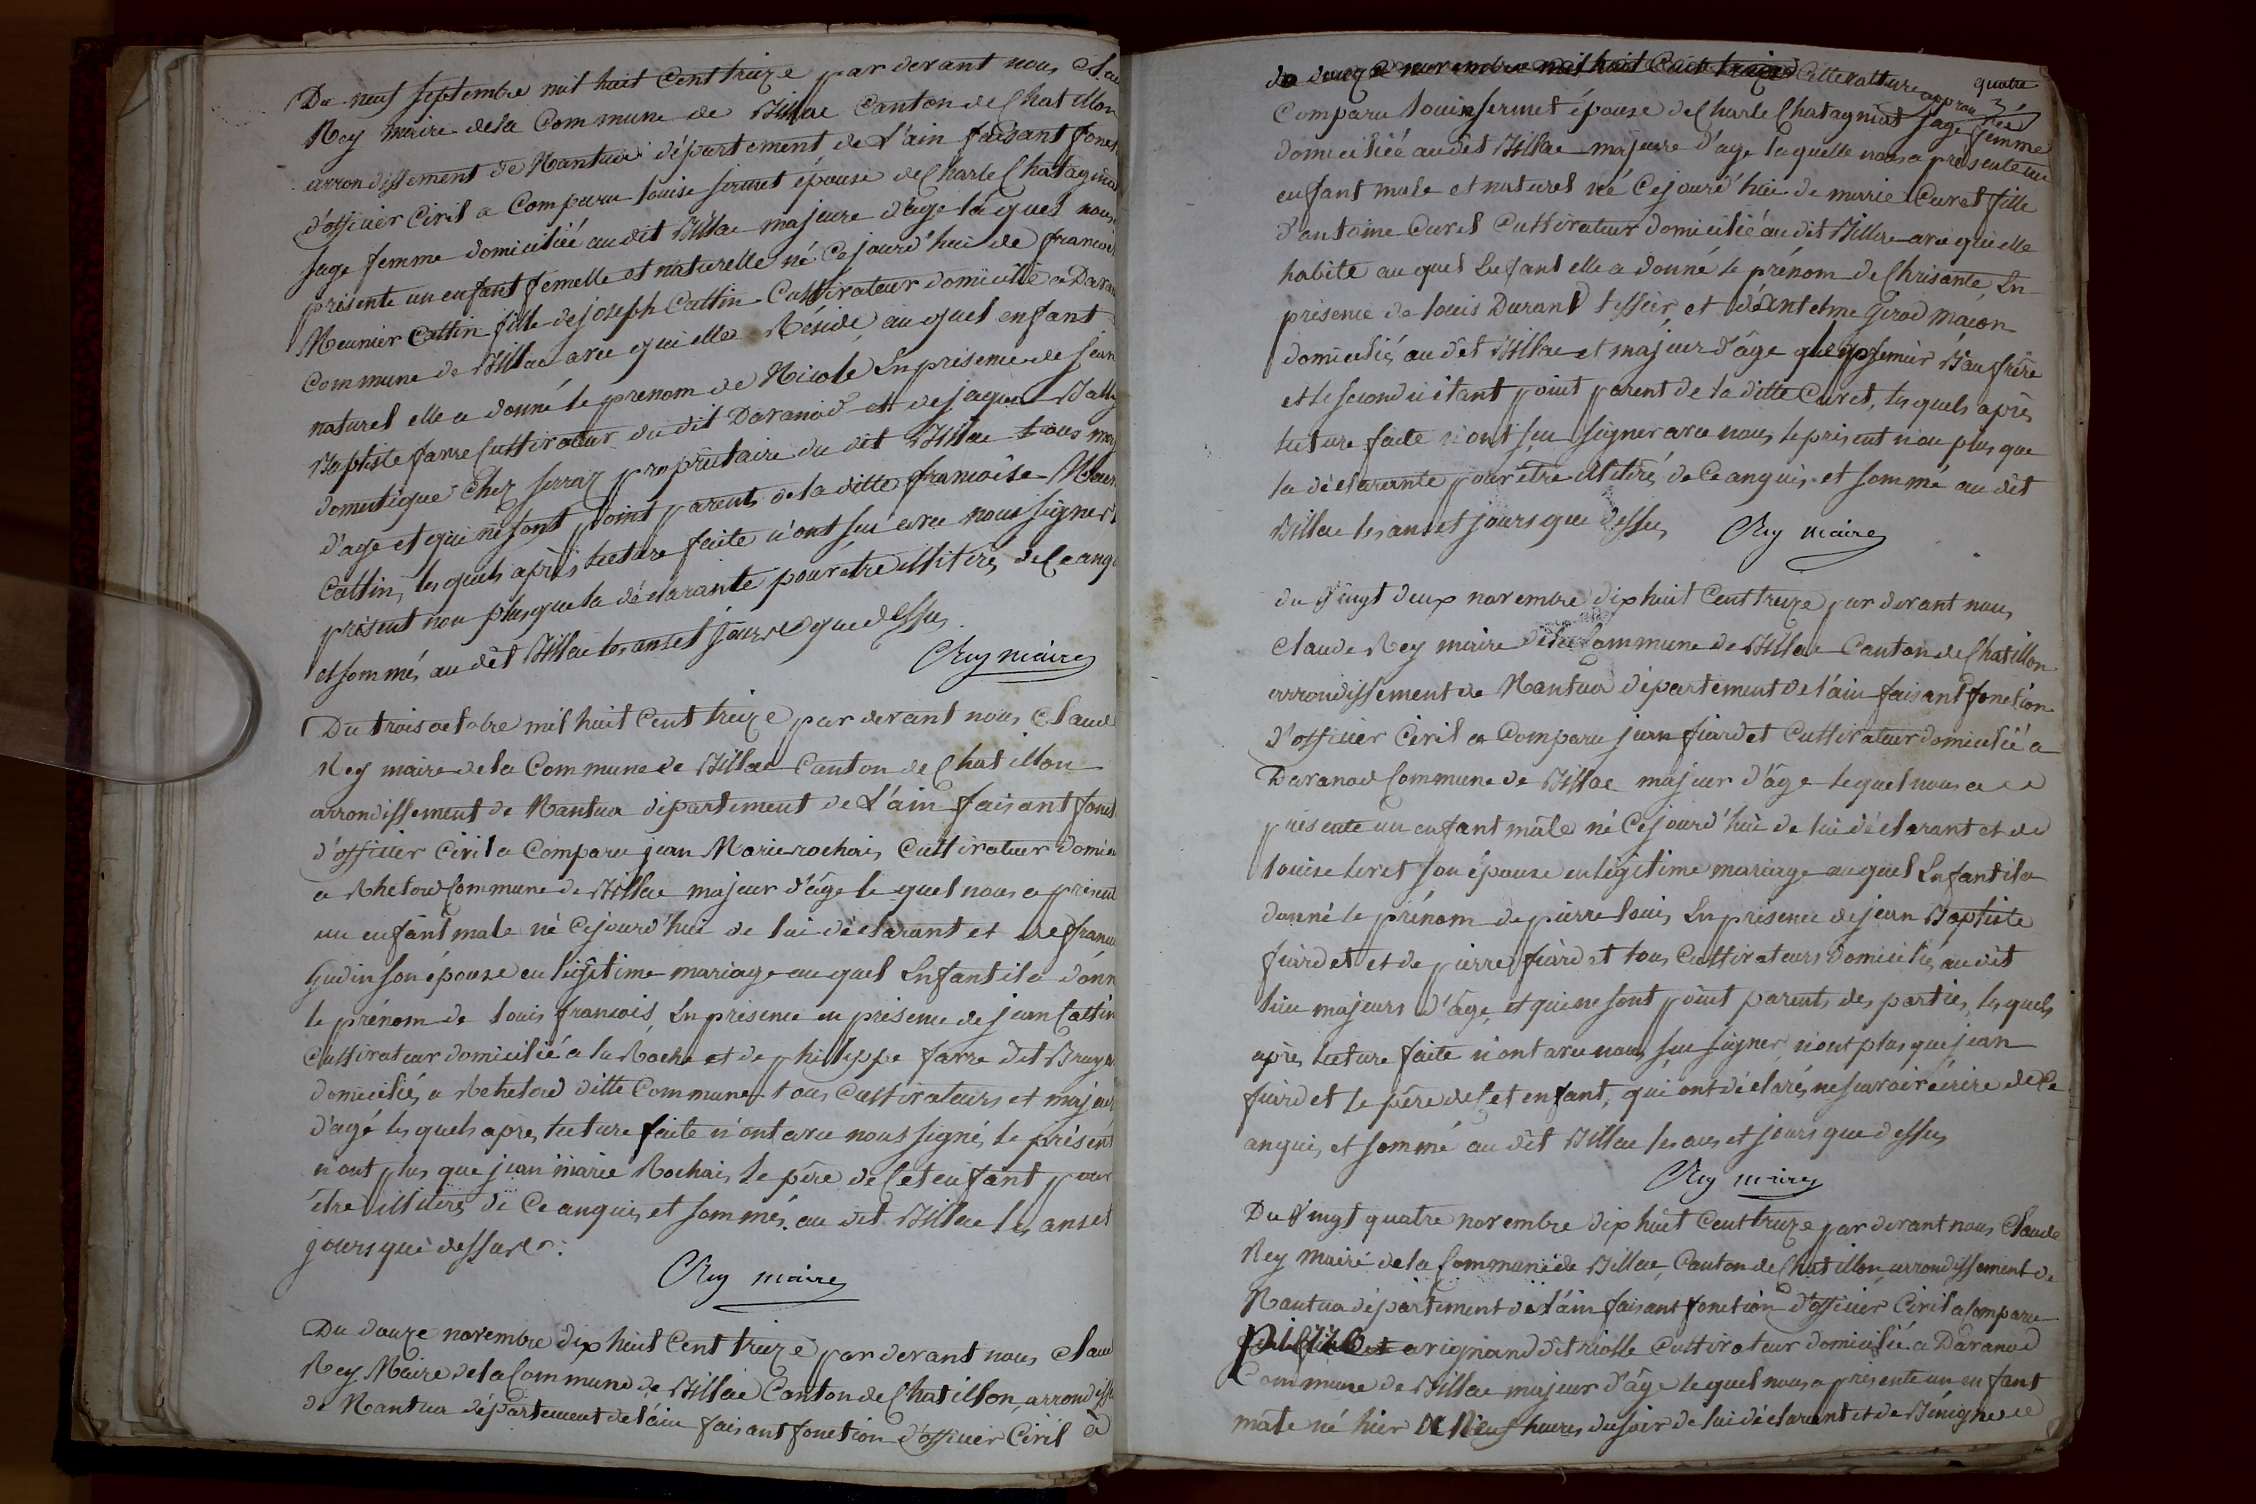 Du neuf septembre mil huit Cent treize par devant nous Clau
Rey maire dela Commune de Billiae Canton de Chatillon
arrondissement de Nantua département de L'ain faisant fonct
d'officier Civil a Comparu louise sermet épouse de Charle Chatagniat
sage femme domiciliée audit Billiae majeure d'age laquel nous
présente un enfant femelle et naturelle né Cejourd'hui de francoi
Meunier Cattin fille de joseph Cattin Cultivateur domicilié a Daran
Commune de Billiae avec qui elle Réside au quel enfant
naturel elle a donné le prenom de Nicole En présence de jean
Baptiste favre Cultivateur du dit Daranod et de jaques Ball
domestique Chez serraz propriétaire du dit Billiae tous maj
d'age et qui ne sont point parents de la ditte francoise Meun
Cattin, les quels après lecture faite n'ont seu avec nous signer l
présent non plus que la déclarante pour être illitirés de Ce anqu
et sommés au dit Billiae les ans et jours que dessus
Rey maire
Du trois octobre mil huit Cent treize par devant nous Claud
Rey maire dela Commune de Billiae Canton de Chatillon
arrondissement de Nantua département de L'ain faisant fonct
d'officier Civil a Comparu jean Marie rochais Cultivateur domici
a Rhetord Commune de Billiae majeur d'âge le quel nous a présent
un enfant male né Cejourd'hui de lui déclarant et de francoi
Gudin son épouse en légitime mariage au quel Enfant il a donn
le prénom de louis francois, En présence en présence de jean Cattin
Cultivateur domicilié a la Roche et de philippe favre dit Bruy
domiciliés a Rehetord ditte Commune tous Cultivateurs et majeur
d'agé les quels après lecture faite n'ont avec nous signés le présent
n'ont plus que jean marie Rochais le père de Cet enfant pour
être illitirés de Ce anquis et sommés au dit Billiae les ans et
jours que dessus
Rey maire
Du douze novembre dix huit Cent treize par devant nous Claud
Rey Maire dela Commune de Billiae Canton de Chatillon, arrondisse
de Nantua département de l'ain faisant fonction d'officier Civil a
du douze novembre mil huit Cent treize Cette rature approuvée
quatre
Comparu louise sermet épouse de Charle Chatagniat sage femme
domiciliée au dit Billiae majeure d'age laquelle nous a présente un
enfant male et naturel né Cejourd'hui de marie Curet fille
d'antoine Curet Cultivateur domicilié au dit Billiae avec qui elle
habite au quel Enfant elle a donné le prénom de Chrisante, En
présence de louis Durand tessier, et d'Antelme Girod macon
domiciliés au dit Billiae et majeur d'âge que le premier Beaufrère
et le second n'étant point parent de la ditte Curet, les quels après
lecture faite n'ont seu signer avec nous le présent non plus que
la déclarante pour être illitirés de Ce anquis et sommé au dit
Billiae les ans et jours que dessus
Rey maire
du vingt deux novembre dix huit Cent treize par devant nous
Claude Rey maire dela Commune de Billiae Canton de Chatillon
arrondissement de Nantua département de l'ain faisant fonction
d'officier Civil a Comparu jean fiardet Cultivateur domicilié a
Daranod Commune de Billiae majeur d'âge le quel nous a
présente un enfant mâle né Cejourd'hui de lui déclarant et de
louise leret son épouse en légitime mariage au quel Enfant il a
donné le prénom de pierre louis, En présence de jean Baptiste
fiardet et de pierre fiardet tous Cultivateurs domiciliés au dit
lieu majeurs d'âge, et qui ne sont point parents des parties, les quels
après lecture faite n'ont avec nous seu signer n'ont plus que jean
fiardet le père de Cet enfant, qui ont déclarés ne savoir écrire de Ce
anquis, et sommé au dit Billiae les ans et jours que dessus
Rey maire
Du vingt quatre novembre dix huit Cent treize par devant nous Claude
Rey Maire de la Commune de Billiae, Canton de Chatillon, arrondissement de
Nantua département de l'ain faisant fonction d'officier Civil a Comparu
pierre arignand dit riolle Cultivateur domicilié a Daranod
Commune de Billiae majeur d'âge le quel nous a présente un enfant
male né hier a Neuf heures du soir de lui déclarant et de Bénigne